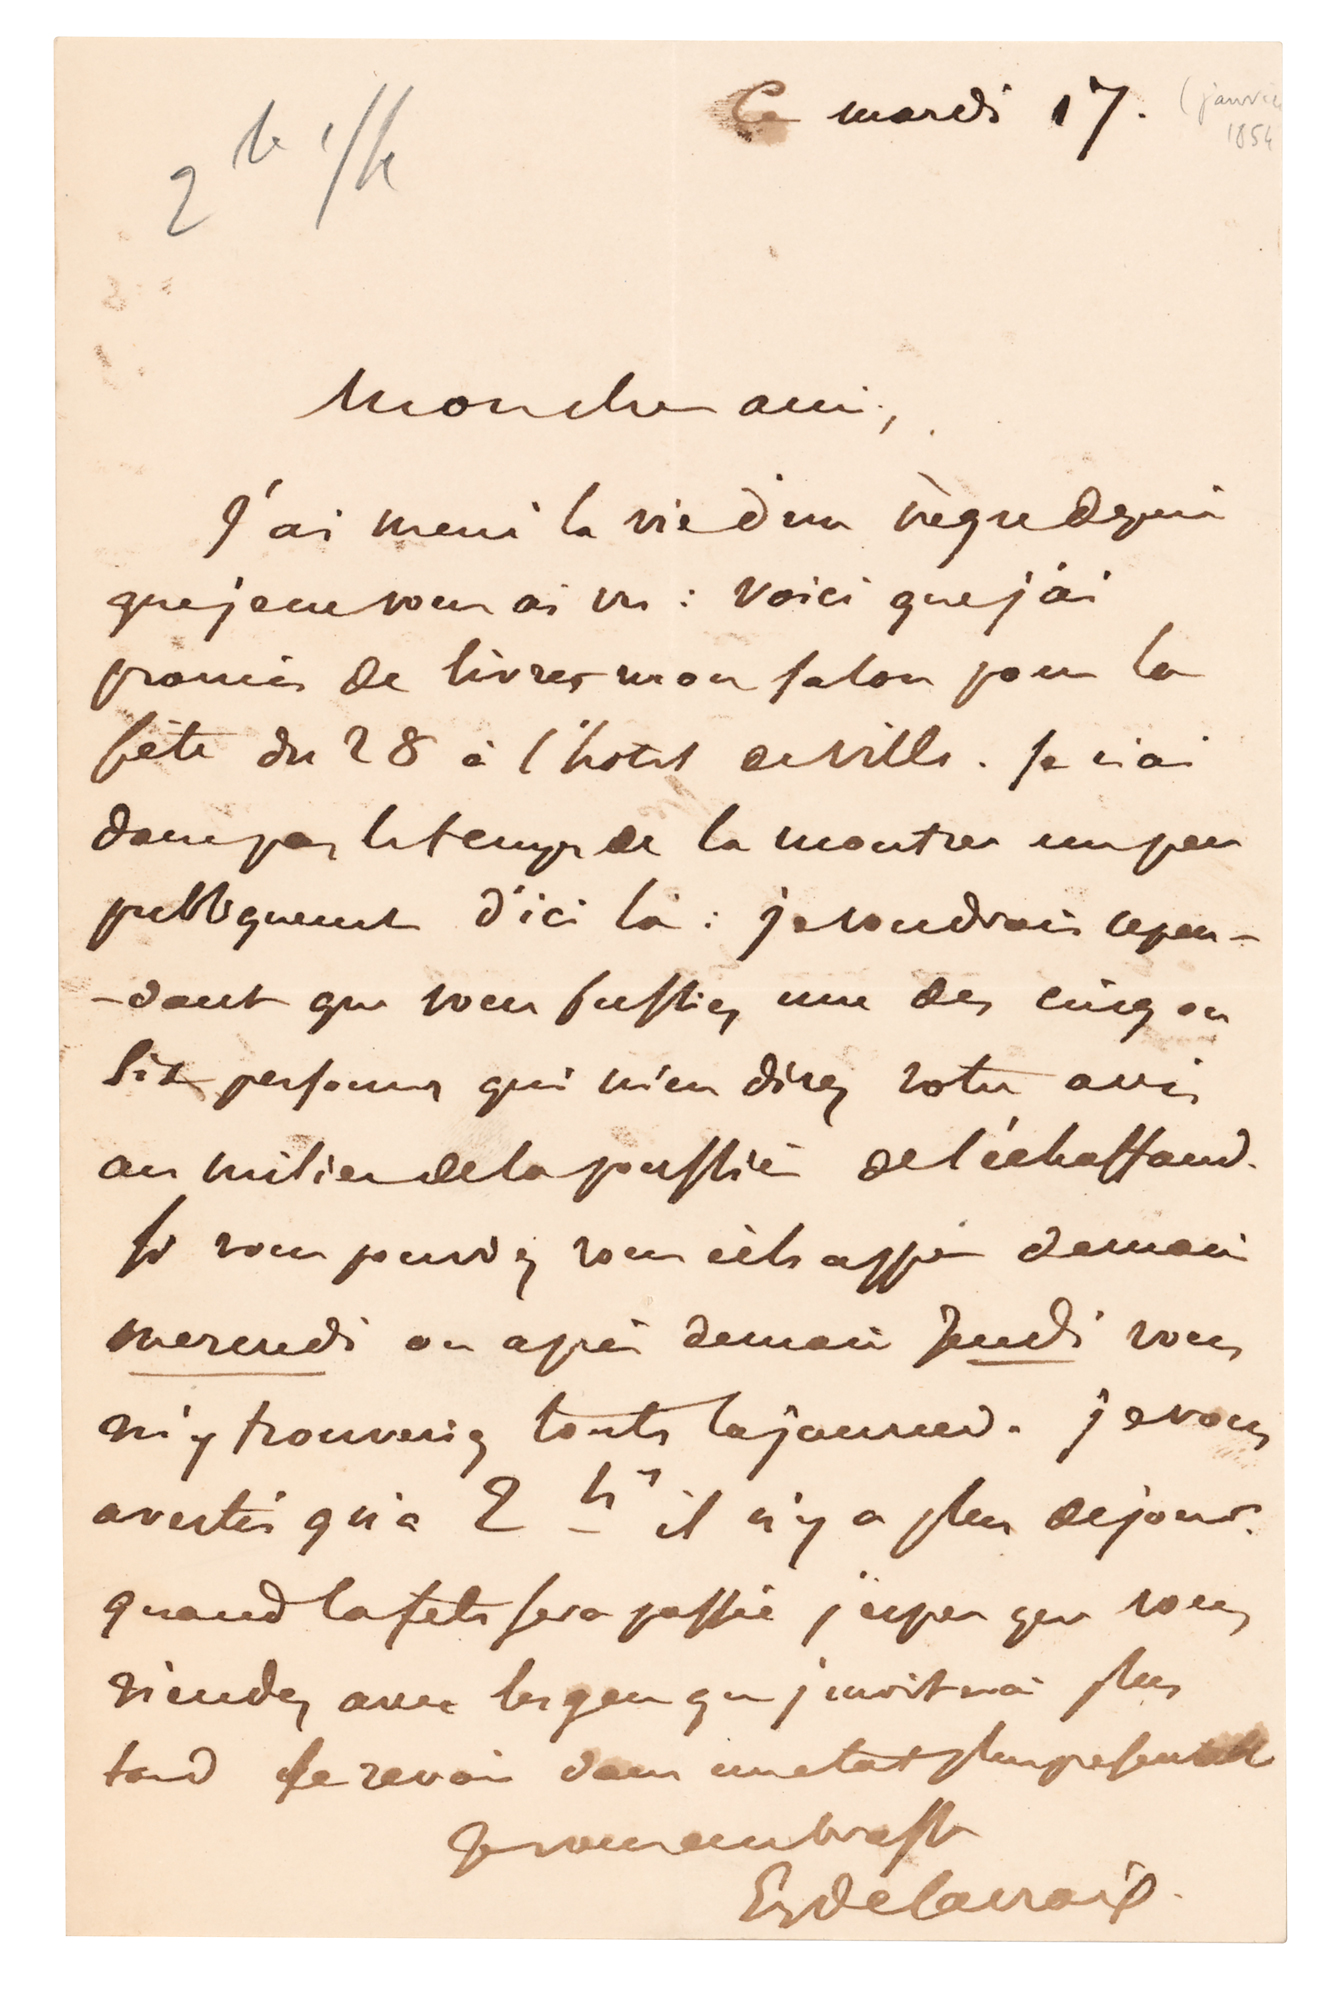 Ce mardi 17. (janvier
1854
2 h 1/2
Mon cher ami,
J'ai mené la vie d'un nègre depuis
que je ne vous ai vu : voici que j'ai
promis de livrer mon salon pour la
fête du 28 à l'hôtel de ville. Je n'ai
donc pas le temps de la montrer un peu
publiquement d'ici là : je voudrais cepen-
-dant que vous fussiez une des cinq ou
six personnes qui m'en direz votre avis
au milieu de la poussière de l'échaffaud.
Si vous pouviez vous échapper demain
mercredi ou après demain Jeudi vous
m'y trouveriez toute la journée. je vous
avertis qu'à 2 hres il n'y a plus de jour.
quand la fête sera passée j'espère que vous
viendrez avec les gens que j'inviterai plus
tard le revoir dans un état plus présentable
Je vous embrasse
Eg Delacroix.